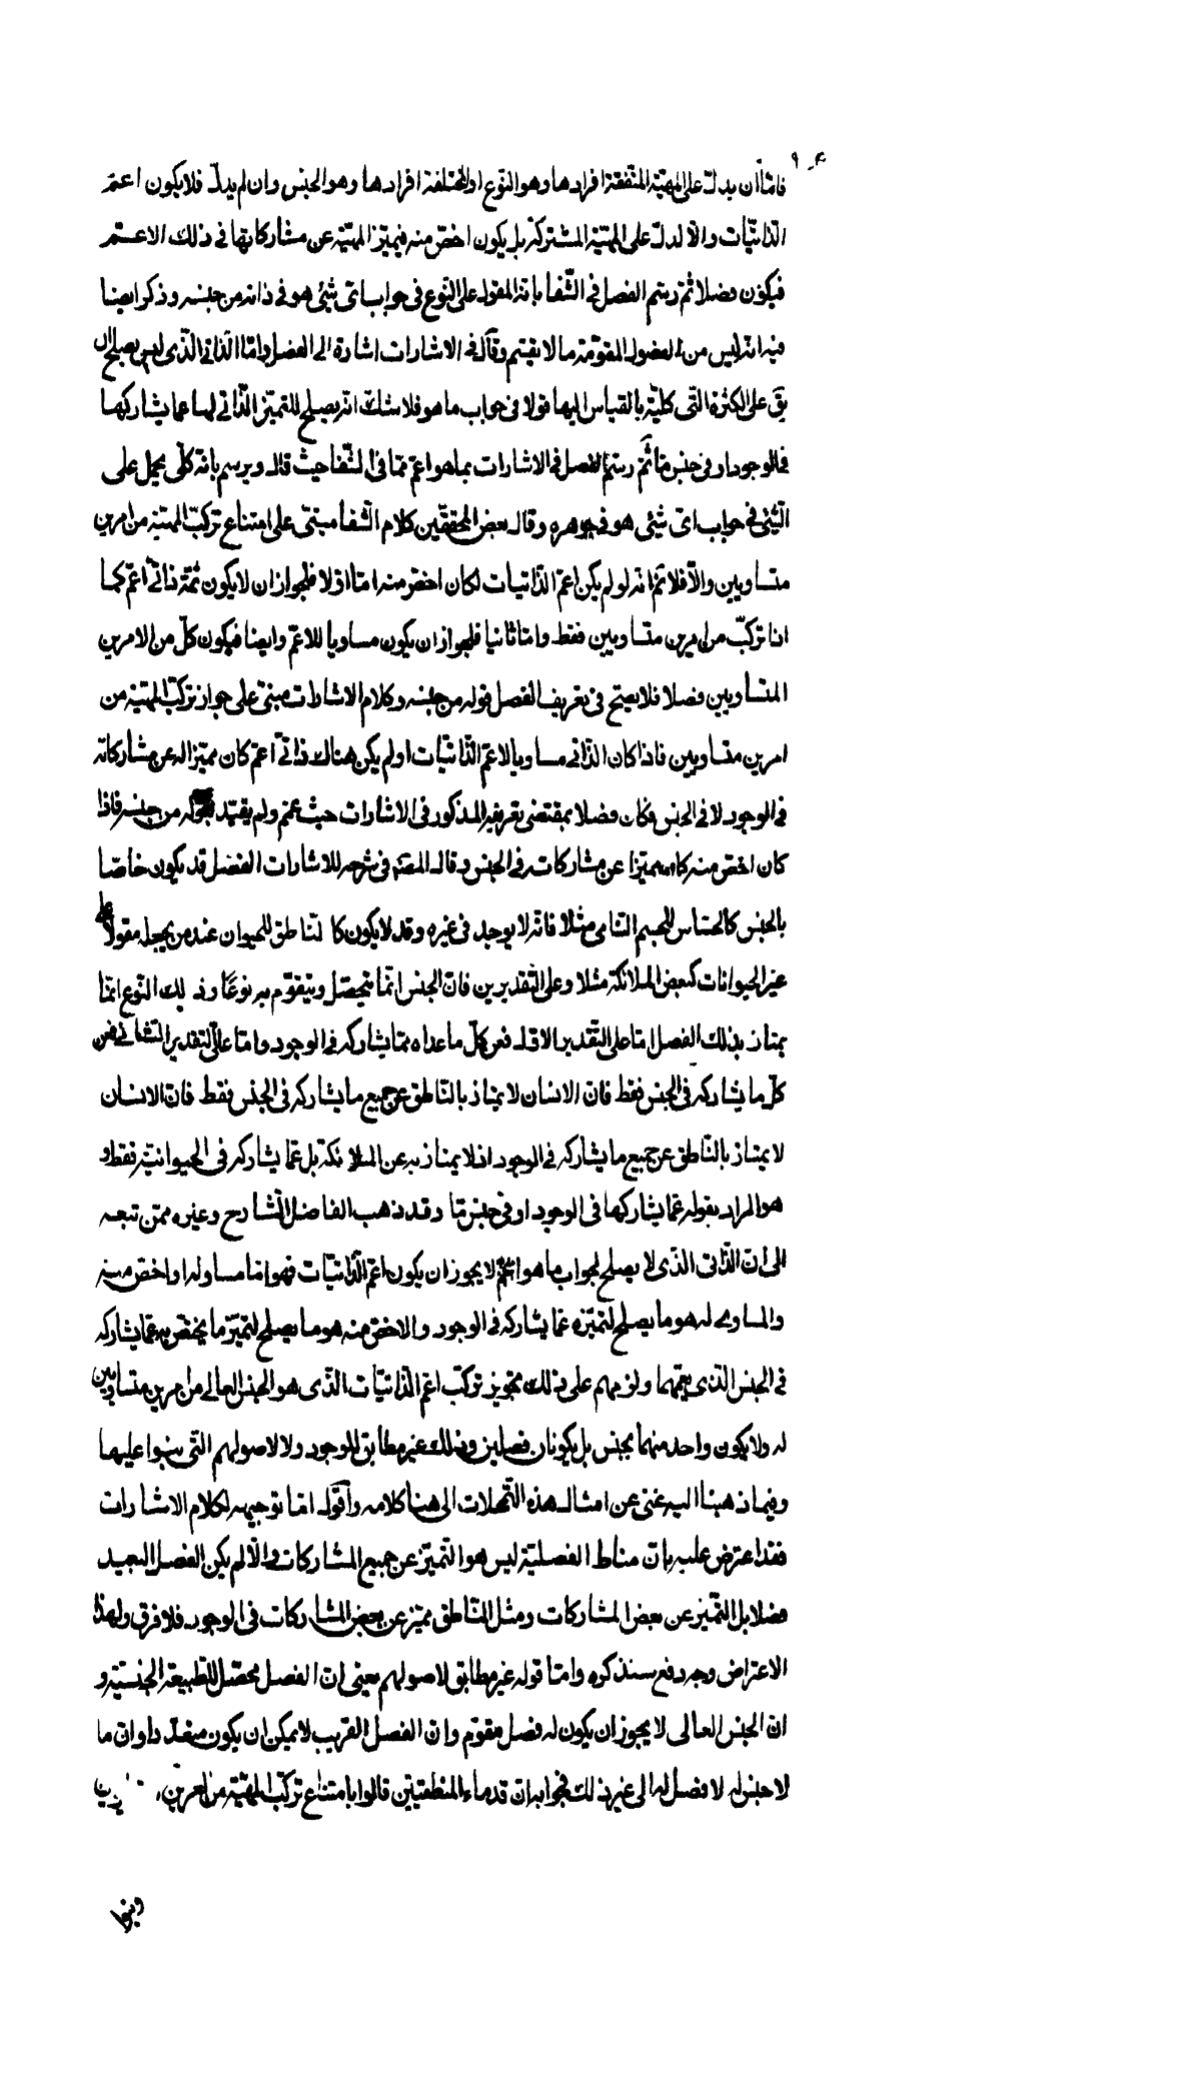 فامّا أن يدلّ على المهيّة المتّفقة افرادها وهو النوع او المختلفة افرادها وهو الجنس وان لم يدلّ فلا يكون اعمّ
الذاتيّات والّا لدلّ على المهيّة المشتركة بل يكون اخصّ منه فيميّز المهيّة عن مشاركاتها فى ذلك الاعمّ
فيكون فصلا ثمّ رسم الفصل فى الشفا بانه المقول على النوع فى جواب اىّ شئ هو فى ذاته من جنسه وذكر ايضا
فيه انه ليس من الفصول المقوّمة ما لا يقسّم وقال فى الاشارات اشارة الى الفصل وامّا الذاتى الّذى ليس يصلح ان
يق على الكثرة التى كليّته بالقياس اليها قولا فى جواب ما هو فلا شكّ انه يصلح للتميّز الذّاتى لها عما يشاركها
فى الوجود او فى جنس ما ثمّ رسم الفصل فى الاشارات بما هو اعمّ ممّا فى الشفا حيث قال ويرسم بانه كلّى يحمل على
الشئ فى جواب اىّ شئ هو فى جوهره وقال بعض المحققين كلام الشفا مبنىّ على امتناع تركّب المهيّة من امرين
متساويين والّا فلا ثمّ انه لو لم يكن اعمّ الذّاتيات لكان اخصّ منه امّا اوّلا فلجواز ان لا يكون ثمّة ذاتى اعمّ كما
اذا تركّب من امرين متساويين فقط وامّا ثانيا فلجواز ان يكون مساويا للاعمّ وايضا فيكون كلّ من الامرين
المتساويين فصلا فلا يصحّ فى تعريف الفصل قوله من جنسه وكلام الاشارات مبنىّ على جواز تركّب المهيّة من
امرين متساويين فاذا كان الذاتى مساويا لاعمّ الذّاتيّات او لم يكن هناك ذاتى اعمّ كان مميّزا له عن مشاركاته
فى الوجود لا فى الجنس فكان فصلا بمقتضى تعريفه المذكور فى الاشارات حيث عمّم ولم يقيّد بقوله من جنسه فاذا
كان اخصّ منه كان مميّزا عن مشاركاته فى الجنس وقال المصنّف فى شرحه للاشارات الفصل قد يكون خاصّا
بالجنس كالحسّاس للجسم النّامى مثلا فانّه لا يوجد فى غيره وقد لا يكون كالنّاطق للحيوان عند من يجعله مقولا على
غير الحيوانات كبعض الملائكة مثلا وعلى التّقديرين فانّ الجنس انّما يتحصّل ويتقوّم به نوعا وذلك النّوع انّما
يمتاز بذلك الفصل امّا على التّقدير الاوّل فعن كلّ ما عداه ممّا يشاركه فى الوجود وامّا على التّقدير الثّانى فعن
كلّ ما يشاركه فى الجنس فقط فانّ الانسان لا يمتاز بالنّاطق عن جميع ما يشاركه فى الجنس فقط فانّ الانسان
لا يمتاز بالنّاطق عن جميع ما يشاركه فى الوجود اذ لا يمتاز به عن الملائكة بل عمّا يشاركه فى الحيوانيّة فقط و
هو المراد بقوله عمّا يشاركها فى الوجود او فى جنس مّا وقد ذهب الفاضل الشّارح وغيره ممّن تبعه
الى انّ الذّاتى الذى لا يصلح لجواب ما هو لا يجوز ان يكون اعمّ الذّاتيّات فهو امّا مساو له او اخصّ منه
والمساوى له هو ما يصلح لتميّزه عمّا يشاركه فى الوجود والاخصّ منه هو ما يصلح لتميّز ما يختصّ به عمّا يشاركه
فى الجنس الذى يعمّهما ولزمهم على ذلك تجويز تركّب اعمّ الذّاتيّات الذّى هو الجنس العالى من امرين متساويين
له ولا يكون واحد منهما بجنس بل يكونان فصلين وذلك غير مطابق للوجود ولا لاصولهم التى بنوا عليها
وفيما ذهبنا اليه غنى عن امثال هذه التّمحّلات الى هنا كلامه واقول امّا توجيهه لكلام الاشارات
فقد اعترض عليه بانّ مناط الفصليّة ليس هو التّميّز عن جميع المشاركات والّا لم يكن الفصل البعيد
فصلا بل التّميّز عن بعض المشاركات ومثل النّاطق مميّز عن بعض المشاركات فى الوجود فلا فرق ولهذا
الاعتراض وجه دفع سنذكره وامّا قوله غير مطابق لاصولهم يعنى ان الفصل محصّل للطّبيعة الجنسيّة و
انّ الجنس العالى لا يجوز ان يكون له فصل مقوّم وانّ الفصل القريب لا يمكن ان يكون متعدّدا وانّ ما
لا جنس له لا فصل له الى غير ذلك فجوابه انّ قدماء المنطقيّين قالوا بامتناع تركّب المهيّة من امرين
وبنوا